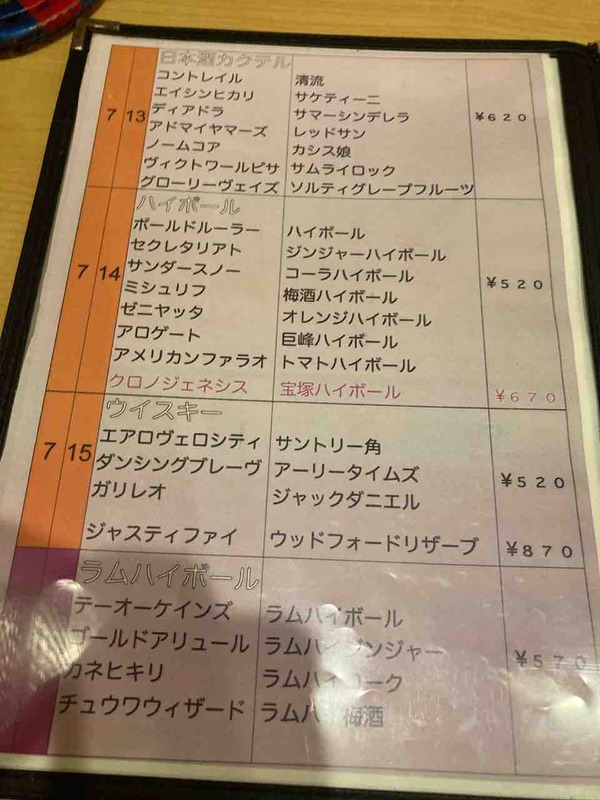 日本酒カクテル
7 13
コントレイル 清流
エイシンヒカリ サケティーニ
ディアドラ サマーシンデレラ
アドマイヤマーズ レッドサン ¥620
ノームコア カシス娘
ヴィクトワールピサ サムライロック
グローリーヴェイズ ソルティグレープフルーツ
ハイボール
7 14
ボールドルーラー ハイボール
セクレタリアト ジンジャーハイボール
サンダースノー コーラハイボール ¥520
ミシュリフ 梅酒ハイボール
ゼニヤッタ オレンジハイボール
アロゲート 巨峰ハイボール
アメリカンファラオ トマトハイボール
クロノジェネシス 宝塚ハイボール ¥670
ウイスキー
7 15
エアロヴェロシティ サントリー角
ダンシングブレーヴ アーリータイムズ ¥520
ガリレオ ジャックダニエル
ジャスティファイ ウッドフォードリザーブ ¥870
ラムハイボール
テーオーケインズ ラムハイボール
ゴールドアリュール ラムハイジンジャー ¥570
カネヒキリ ラムハイコーク
チュウワウィザード ラムハイ梅酒